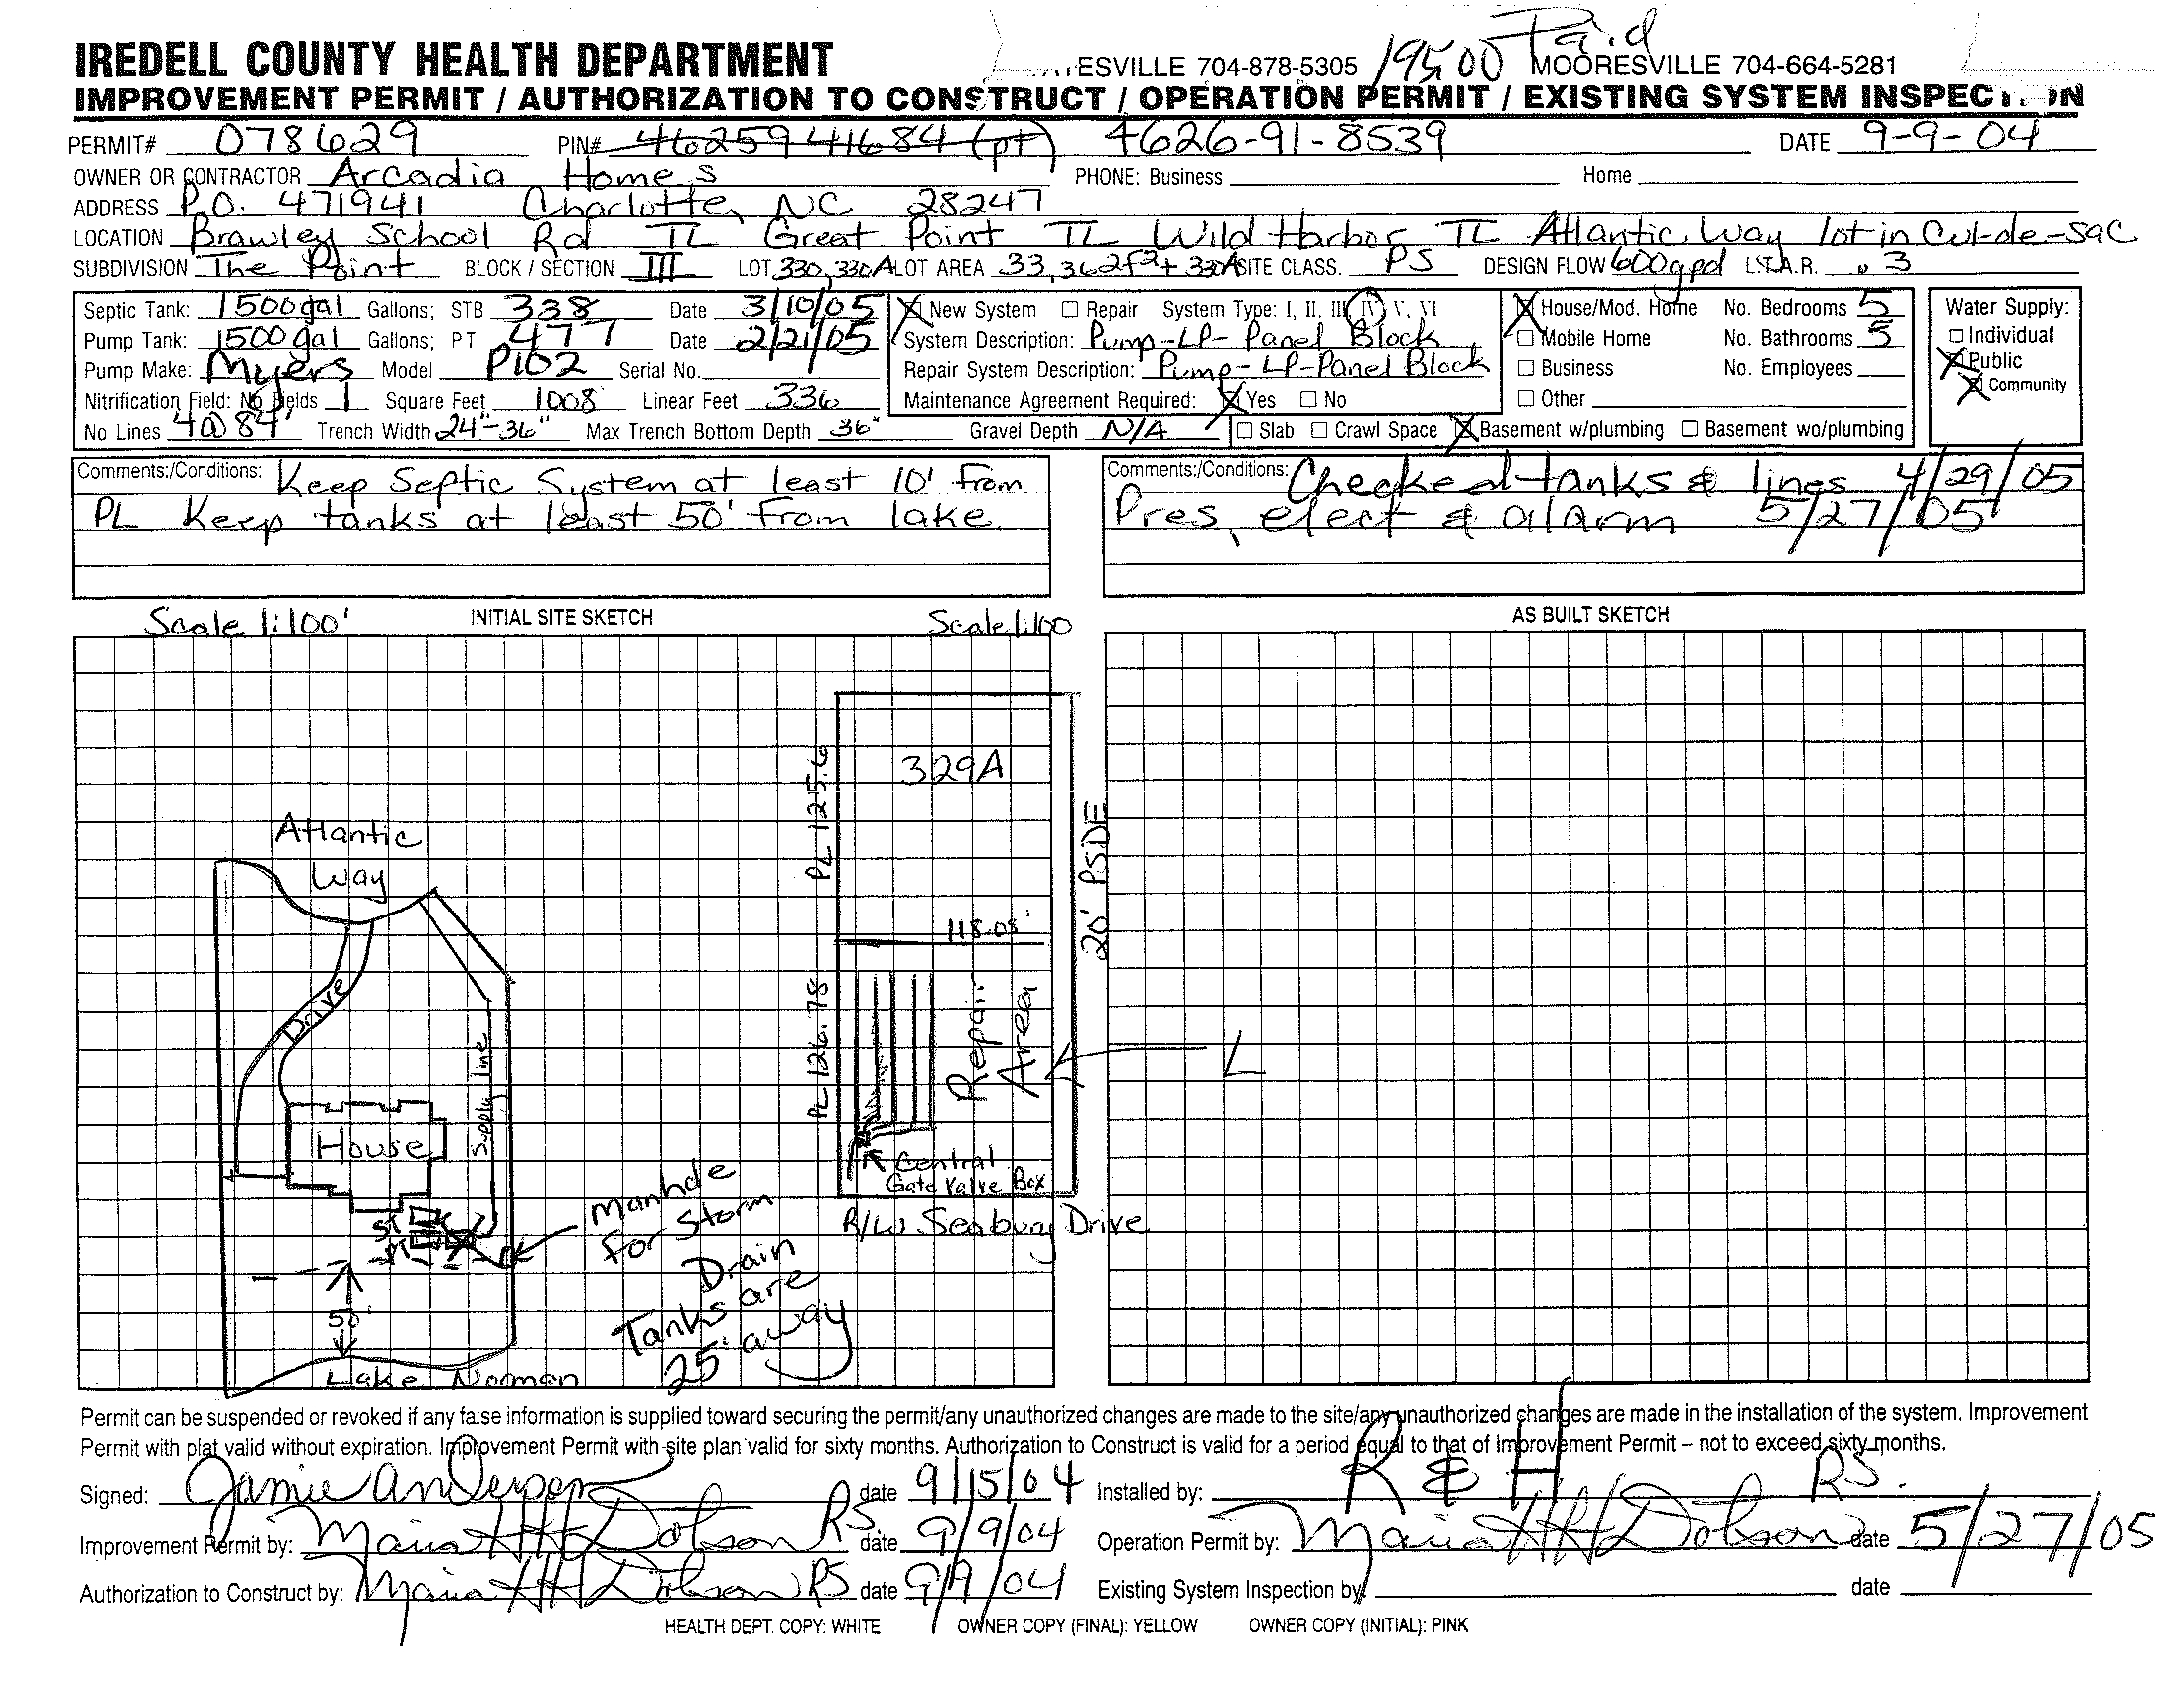 195.00 Paid
IREDELL COUNTY HEALTH DEPARTMENT ESVILLE 704-878-5305 MOORESVILLE 704-664-5281
IMPROVEMENT PERMIT / AUTHORIZATION TO CONSTRUCT / OPERATION PERMIT / EXISTING SYSTEM INSPECTION
PERMIT# 078629 PIN# 4625941684 (pt) 4626-91-8539 DATE 9-9-04
OWNER OR CONTRACTOR Arcadia Homes PHONE: Business Home
ADDRESS P.O. 471941 Charlotte, NC 28247
LOCATION Brawley School Rd TL Great Point TL Wild Harbor TL Atlantic Way lot in Cul-de-sac
SUBDIVISION The Point BLOCK / SECTION III LOT 330, 330A LOT AREA 33,362f² + 330A SITE CLASS. PS DESIGN FLOW 600gpd L.T.A.R. .3
Septic Tank: 1500gal Gallons; STB 338 Date 3/10/05
Pump Tank: 1500gal Gallons; PT 477 Date 2/21/05
Pump Make: Myers Model P102 Serial No.
Nitrification Field: No Fields 1 Square Feet 1008 Linear Feet 336
No Lines 4@84' Trench Width 24"-36" Max Trench Bottom Depth 36" Gravel Depth N/A
New System Repair System Type: I, II, III, IV, V, VI
System Description: Pump-LP-Panel Block
Repair System Description: Pump-LP-Panel Block
Maintenance Agreement Required: Yes No
Slab Crawl Space Basement w/plumbing Basement wo/plumbing
House/Mod. Home No. Bedrooms 5
Mobile Home No. Bathrooms 5
Business No. Employees
Other
Water Supply:
Individual
Public
Community
Comments:/Conditions: Keep Septic System at least 10' from
PL Keep tanks at least 50' from lake
Comments:/Conditions: Checked tanks & lines 4/29/05
Pres, elect & alarm 5/27/05
Scale 1:100' INITIAL SITE SKETCH Scale 1:100
AS BUILT SKETCH
329A
PL 125.6
20' PSDE
Atlantic
Way
118.08'
Drive
PL 126.78
Repair
Area
Supply line
House
Central
Gate Valve Box
ST
PT
Manhole
for Storm
Drain
Tanks are
25' away
R/W Seabury Drive
50'
Lake Norman
Permit can be suspended or revoked if any false information is supplied toward securing the permit/any unauthorized changes are made to the site/any unauthorized changes are made in the installation of the system. Improvement
Permit with plat valid without expiration. Improvement Permit with site plan valid for sixty months. Authorization to Construct is valid for a period equal to that of Improvement Permit – not to exceed sixty months.
Signed: Jamie Anderson date 9/15/04 Installed by: R & H
Improvement Permit by: Maria HH Dobson RS. date 9/9/04 Operation Permit by: Maria HH Dobson RS. date 5/27/05
Authorization to Construct by: Maria HH Dobson RS date 9/9/04 Existing System Inspection by: date
HEALTH DEPT. COPY: WHITE OWNER COPY (FINAL): YELLOW OWNER COPY (INITIAL): PINK